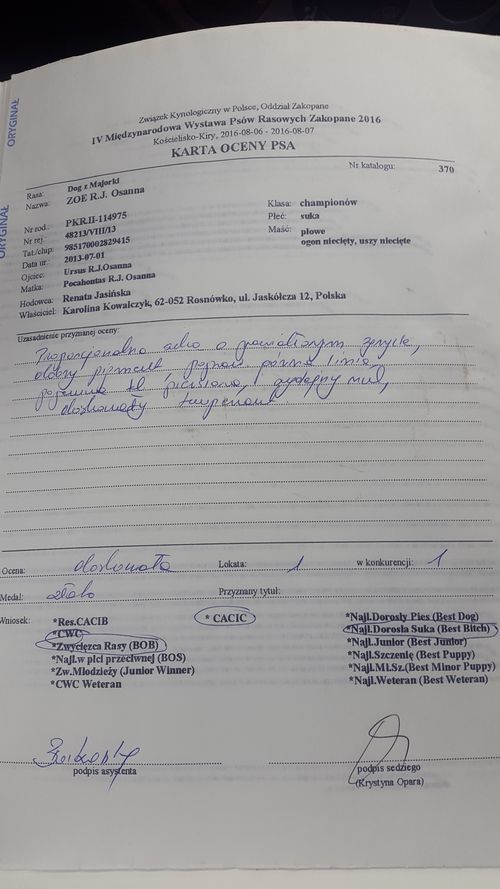 ORYGINAŁ
ORYGINAŁ
Związek Kynologiczny w Polsce, Oddział Zakopane
IV Międzynarodowa Wystawa Psów Rasowych Zakopane 2016
Kościelisko-Kiry, 2016-08-06 - 2016-08-07
KARTA OCENY PSA
Nr katalogu: 370
Rasa: Dog z Majorki
Nazwa: ZOE R.J. Osanna
Klasa: championów
Płeć: suka
Maść: płowe
ogon niecięty, uszy niecięte
Nr rod.: PKR.II-114975
Nr rej.: 48213/VIII/13
Tat./chip: 985170002829415
Data ur.: 2013-07-01
Ojciec: Ursus R.J.Osanna
Matka: Pocahontas R.J. Osanna
Hodowca: Renata Jasińska
Właściciel: Karolina Kowalczyk, 62-052 Rosnówko, ul. Jaskółcza 12, Polska
Uzasadnienie przyznanej oceny:
Proporcjonalna sucha o prawidłowym zgryzie,
dobry pigment, popraw. górna linia,
pojemna kl. piersiowa, wydajny ruch,
doskonały temperament
Ocena: doskonała Lokata: 1 w konkurencji: 1
Medal: złoto Przyznany tytuł:
Wniosek: *Res.CACIB
*CWC
*Zwycięzca Rasy (BOB)
*Najl.w płci przeciwnej (BOS)
*Zw.Młodzieży (Junior Winner)
*CWC Weteran
* CACIC
*Najl.Dorosły Pies (Best Dog)
*Najl.Dorosła Suka (Best Bitch)
*Najl.Junior (Best Junior)
*Najl.Szczenię (Best Puppy)
*Najl.Mł.Sz.(Best Minor Puppy)
*Najl.Weteran (Best Weteran)
podpis asystenta
podpis sędziego
(Krystyna Opara)